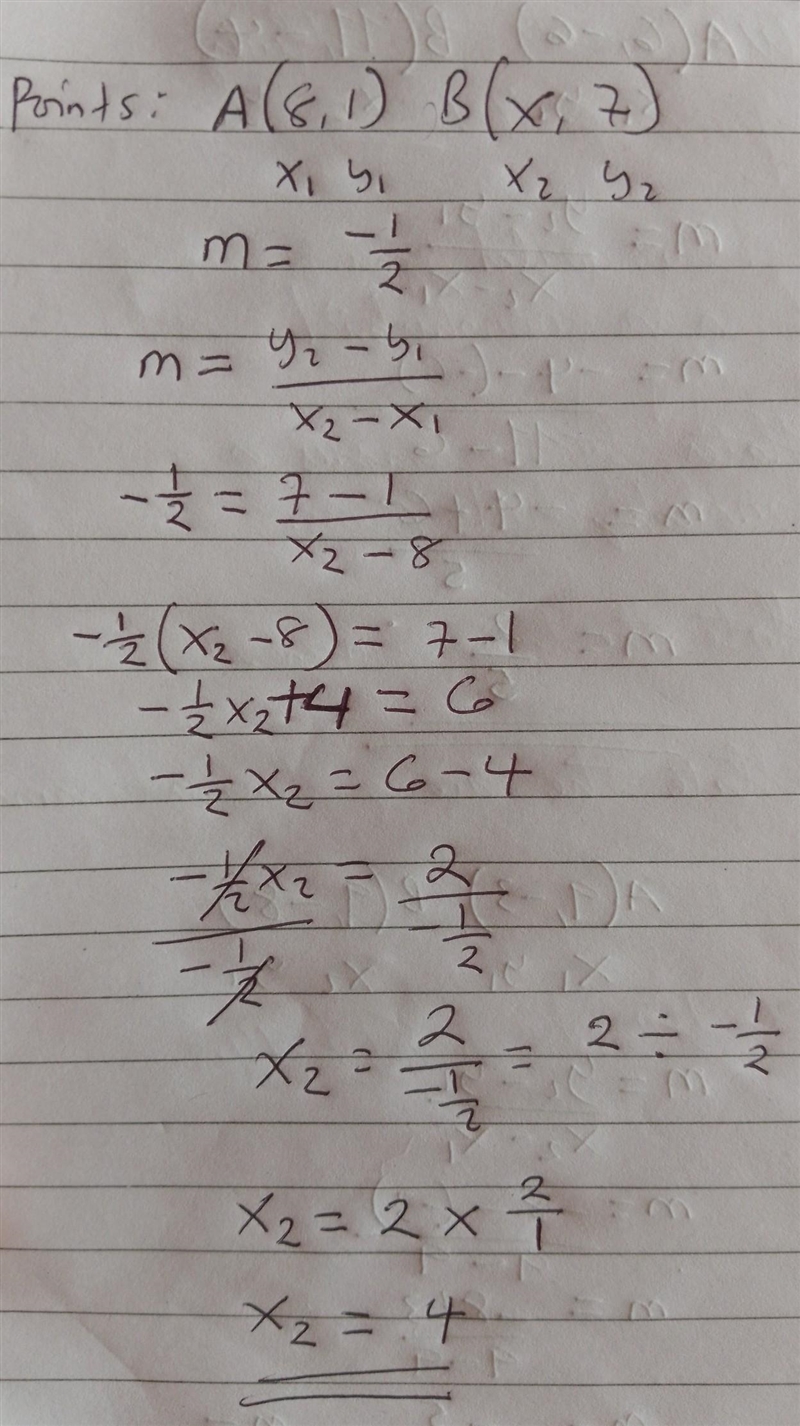 Points: A(8,1) B(x, 7)
x₁ y₁ x₂ y₂
m = -1/2
m = (y₂ - y₁)/(x₂ - x₁)
-1/2 = (7 - 1)/(x₂ - 8)
-1/2(x₂ - 8) = 7 - 1
-1/2x₂ + 4 = 6
-1/2x₂ = 6 - 4
(-1/2x₂)/(-1/2) = 2/(-1/2)
x₂ = 2/(-1/2) = 2 ÷ -1/2
x₂ = 2 × 2/1
x₂ = 4